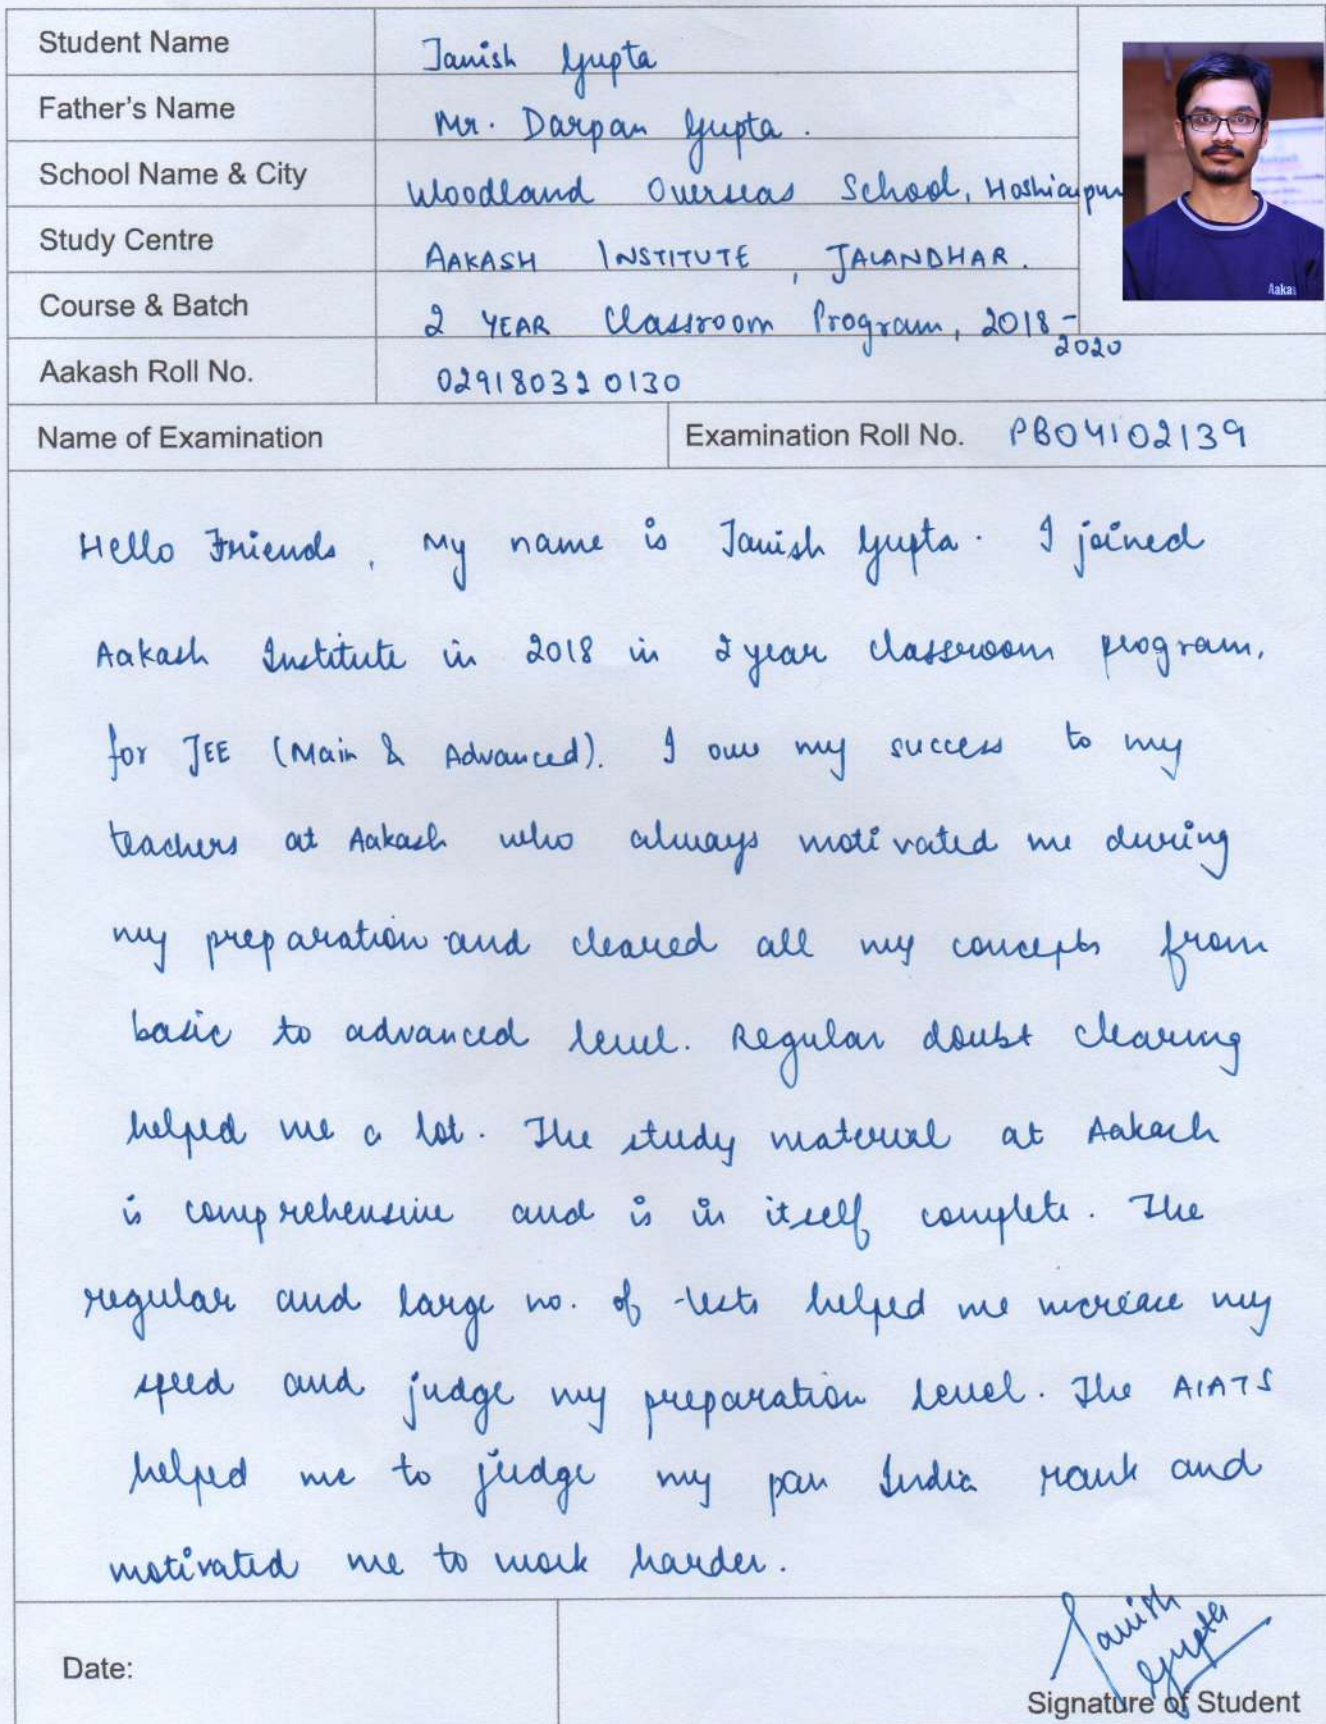 Student Name Tanish Gupta
Father's Name Mr. Darpan Gupta.
School Name & City Woodland Overseas School, Hoshiarpur
Study Centre AAKASH INSTITUTE, JALANDHAR.
Course & Batch 2 YEAR Classroom Program, 2018-2020
Aakash Roll No. 029180320130
Name of Examination Examination Roll No. PB04102139
Aakas
Hello Friends, My name is Tanish Gupta. I joined
Aakash Institute in 2018 in 2 year classroom program.
for JEE (Main & Advanced). I owe my success to my
teachers at Aakash who always motivated me during
my preparation and cleared all my concepts from
basic to advanced level. Regular doubt clearing
helped me a lot. The study material at Aakash
is comprehensive and is in itself complete. The
regular and large no. of tests helped me increase my
speed and judge my preparation level. The AIATS
helped me to judge my pan India rank and
motivated me to work harder.
Tanish
Gupta
Date: Signature of Student